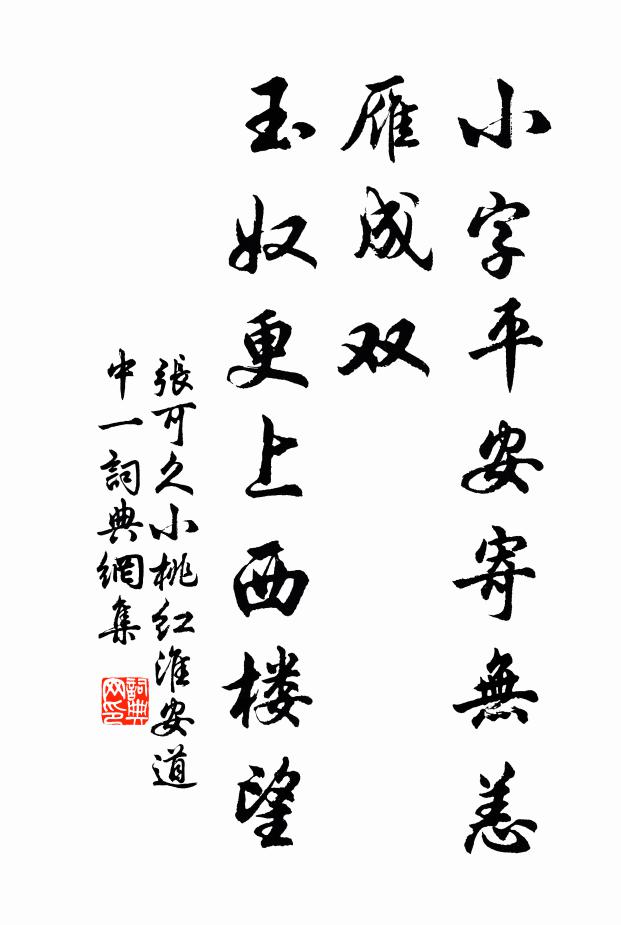 小字平安寄無恙
雁成双
玉奴更上西楼望
張可久小桃红淮安道
中一詞典網集
詞典网印